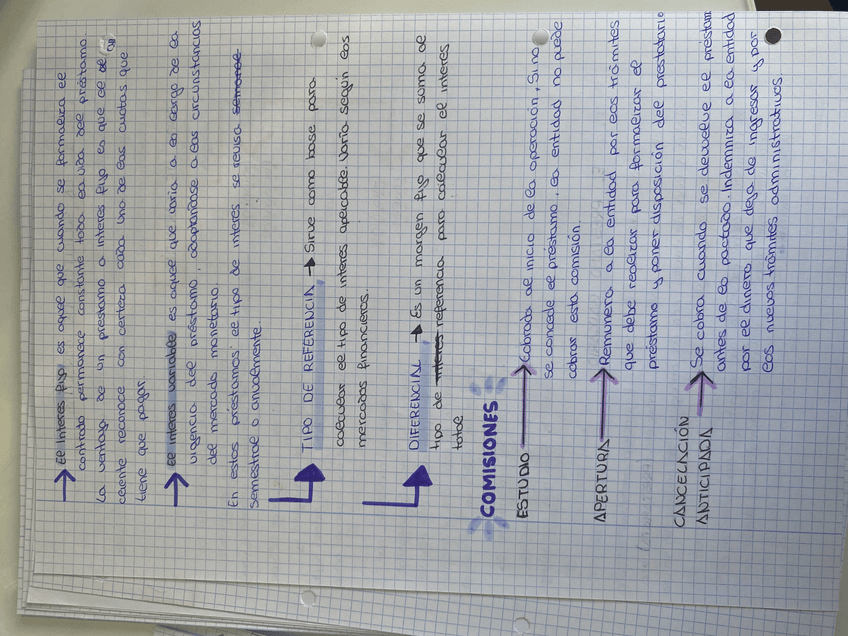 → El interés fijo es aquel que cuando se formaliza el
contrato permanece constante toda la vida del préstamo.
La ventaja de un préstamo a interés fijo es que el
cliente reconoce con certeza cada una de las cuotas que
tiene que pagar.
→ El interés variable es aquel que varia a lo largo de la
vigencia del préstamo, adaptandose a las circunstancias
del mercado monetario.
En estos préstamos el tipo de interés se revisa semanal
semestral o anualmente.
TIPO DE REFERENCIA → Sirve como base para
calcular el tipo de interes aplicable. Varia según los
mercados financieros.
DIFERENCIAL → Es un margen fijo que se suma al
tipo de interes referencia para calcular el interes
total
COMISIONES
ESTUDIO → Cobrada al inicio de la operación, Si no
se concede el préstamo, la entidad no puede
cobrar esta comisión.
APERTURA → Remunera a la entidad por los trámites
que debe realizar para formalizar el
préstamo y poner disposición del prestatario
CANCELACIÓN
ANTICIPADA → Se cobra cuando se devuelve el préstam
antes de lo pactado. Indemniza a la entidad
por el dinero que deja de ingresar y por
los nuevos trámites administrativos